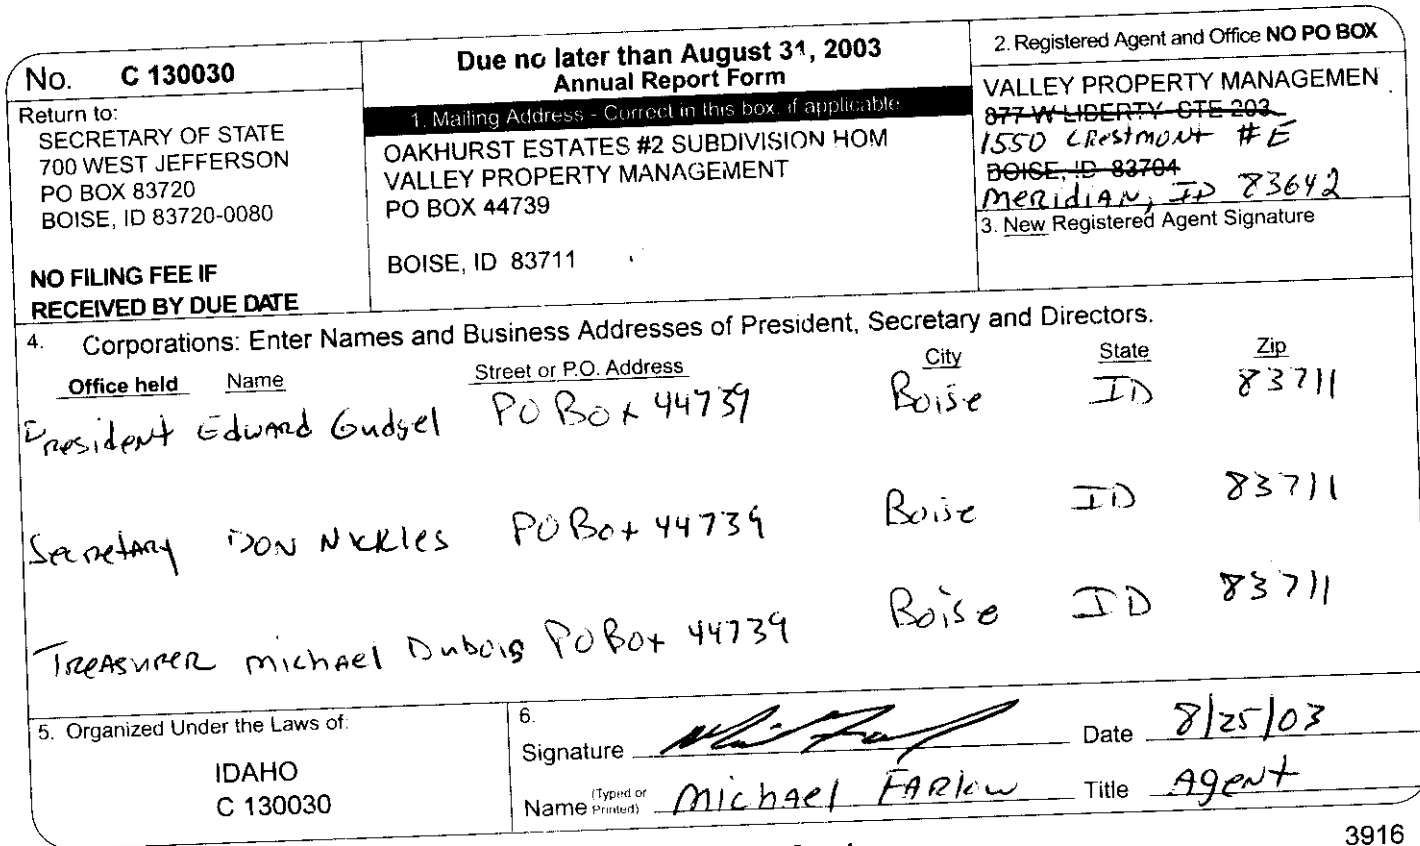 No. C 130030
Return to:
SECRETARY OF STATE
700 WEST JEFFERSON
PO BOX 83720
BOISE, ID 83720-0080
NO FILING FEE IF
RECEIVED BY DUE DATE
Due no later than August 31, 2003
Annual Report Form
1. Mailing Address - Correct in this box, if applicable
OAKHURST ESTATES #2 SUBDIVISION HOM
VALLEY PROPERTY MANAGEMENT
PO BOX 44739
BOISE, ID 83711
2. Registered Agent and Office NO PO BOX
VALLEY PROPERTY MANAGEMEN
877 W LIBERTY STE 203
1550 CRestmont #E
BOISE, ID 83704
MeRidiAN, ID 83642
3. New Registered Agent Signature
4. Corporations: Enter Names and Business Addresses of President, Secretary and Directors.
Office held Name Street or P.O. Address City State Zip
President Edward Gudgel PO Box 44739 Boise ID 83711
Secretary DON Nickles PO Box 44739 Boise ID 83711
TReasurer michael Dubois PO Box 44739 Boise ID 83711
5. Organized Under the Laws of:
IDAHO
C 130030
6.
Signature Date 8/25/03
Name (Typed or Printed) Michael FARlow Title Agent
3916